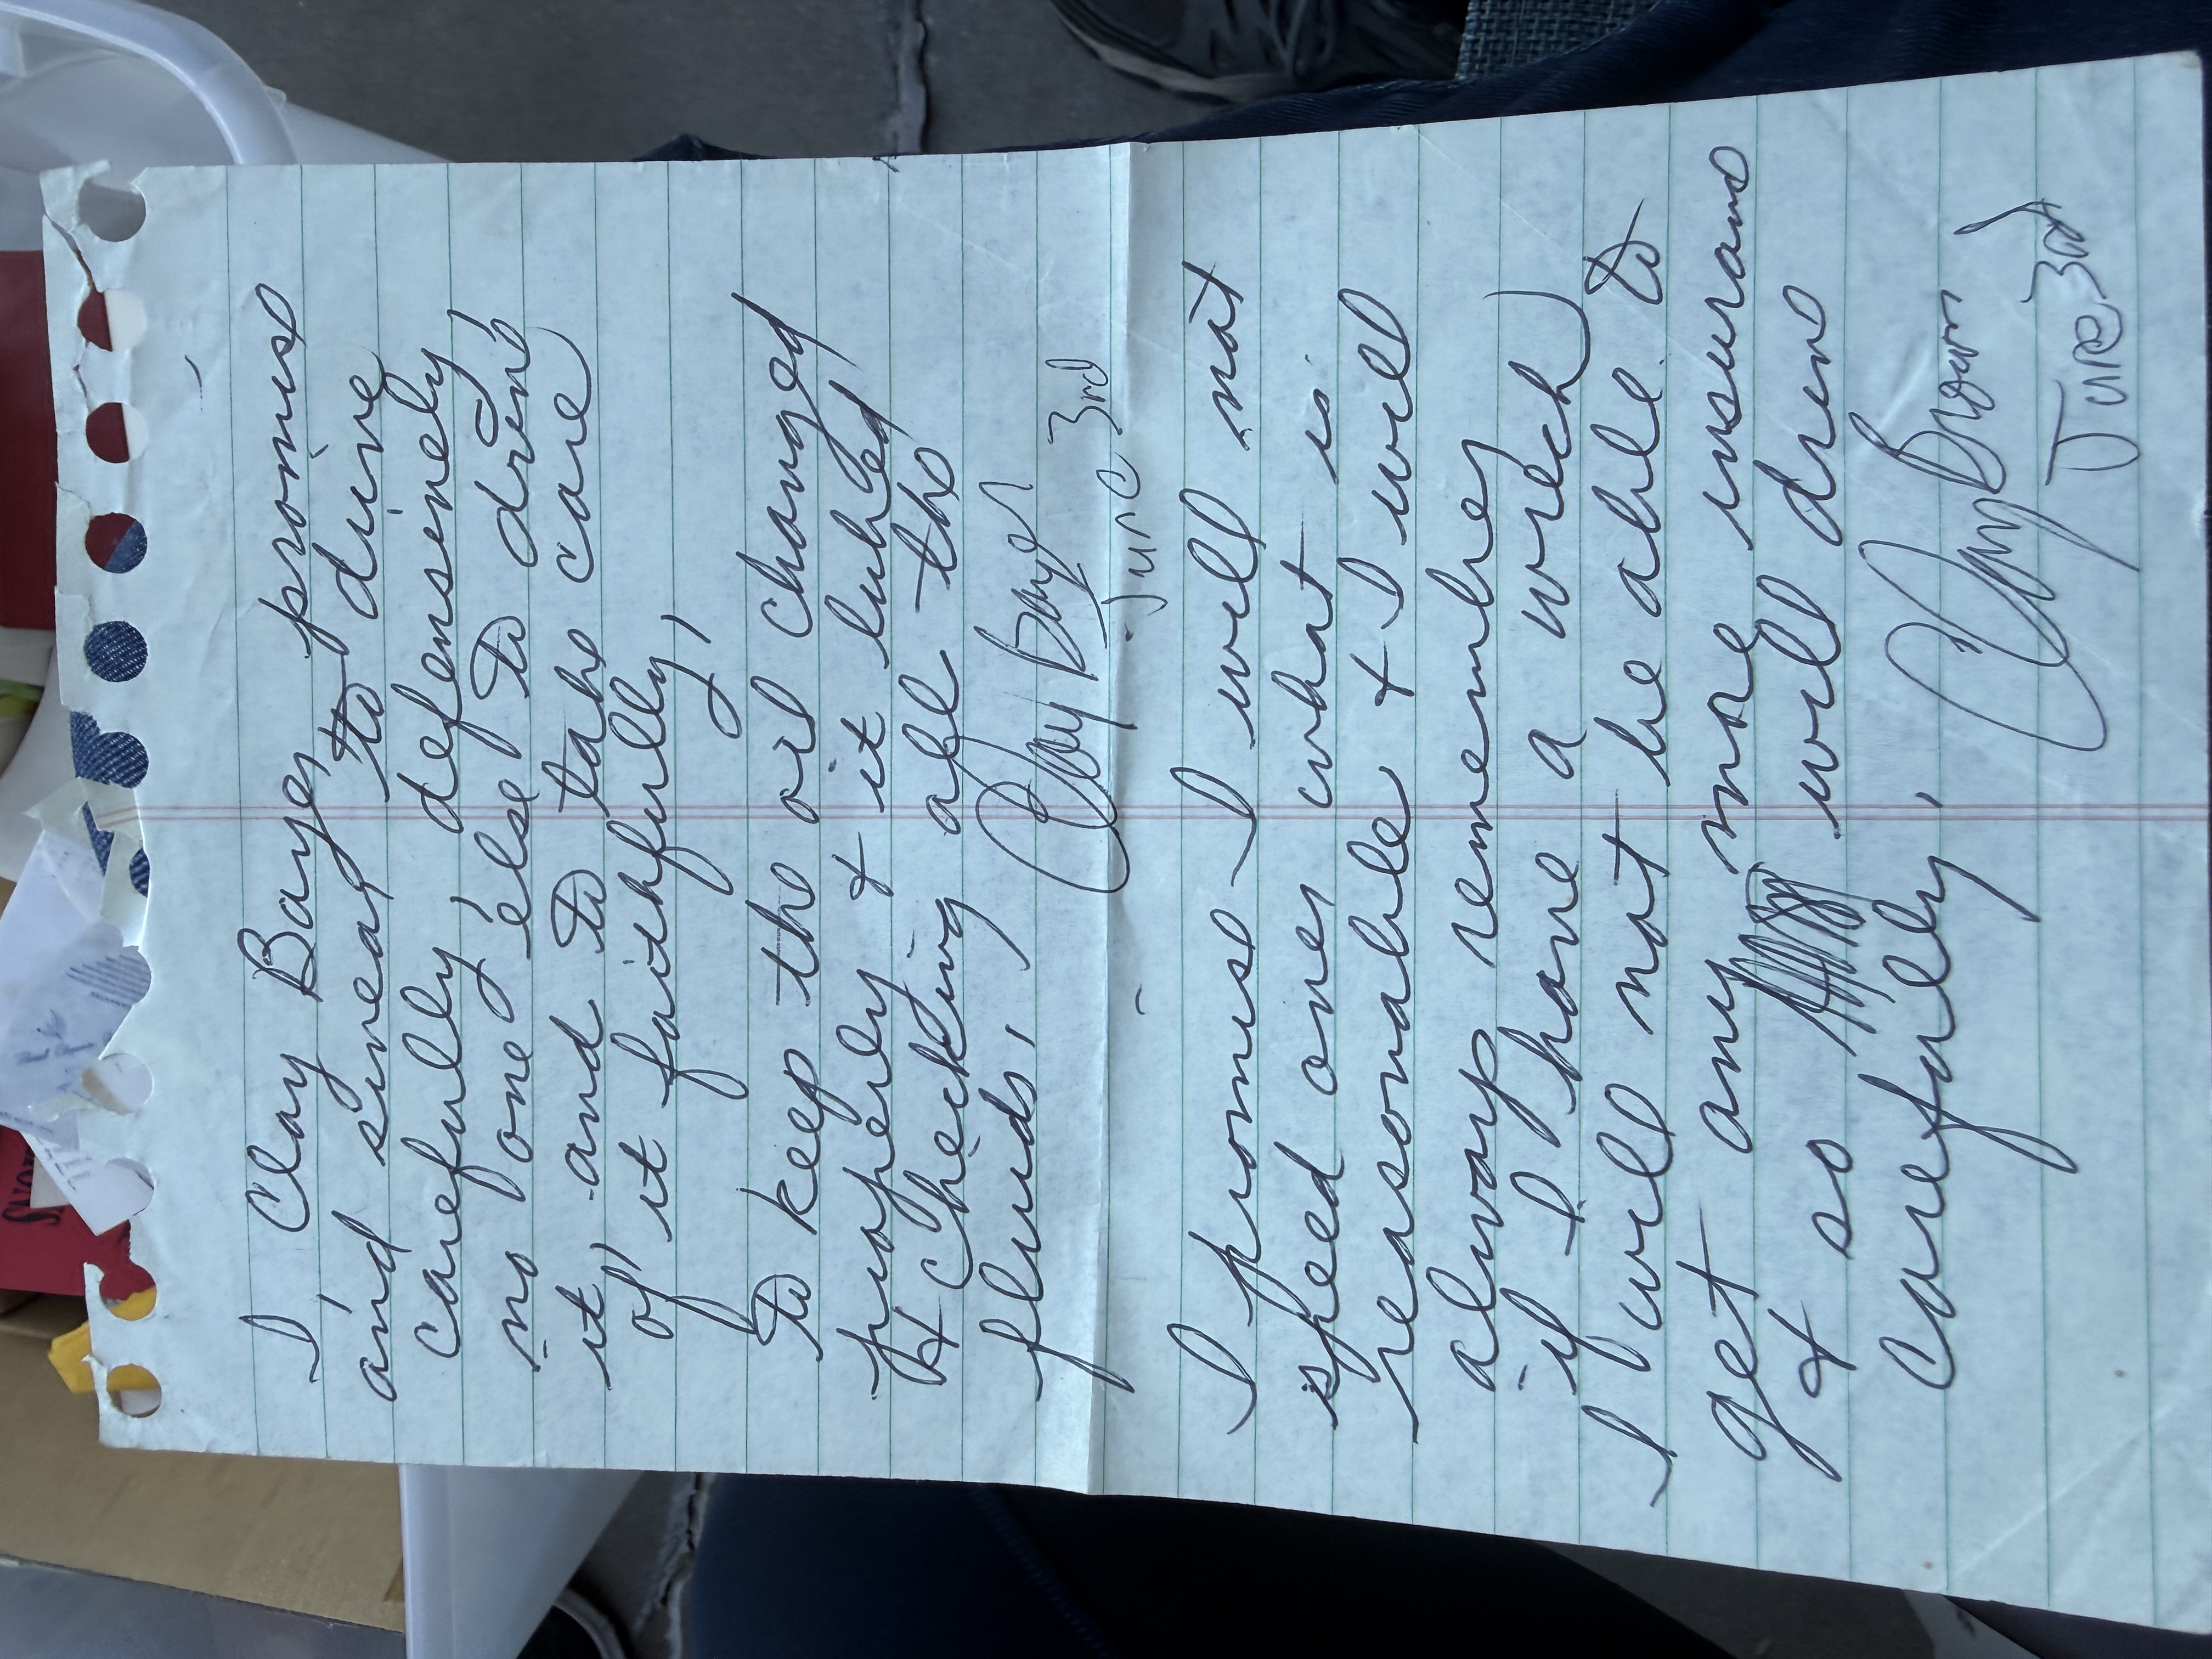 I Clay Bayer promise
and swear to drive
carefully, defensively,
no one else to drive
it, and to take care
of it faithfully,
to keep the oil changed
properly & it lubed
& checking all the
fluids.
Clay Bayer
June 3rd
I promise I will not
speed over what is
reasonable & I will
always remember
if I have a wreck
I will not be able to
get any more insurance
& so will drive
carefully.
Clay
June 3rd